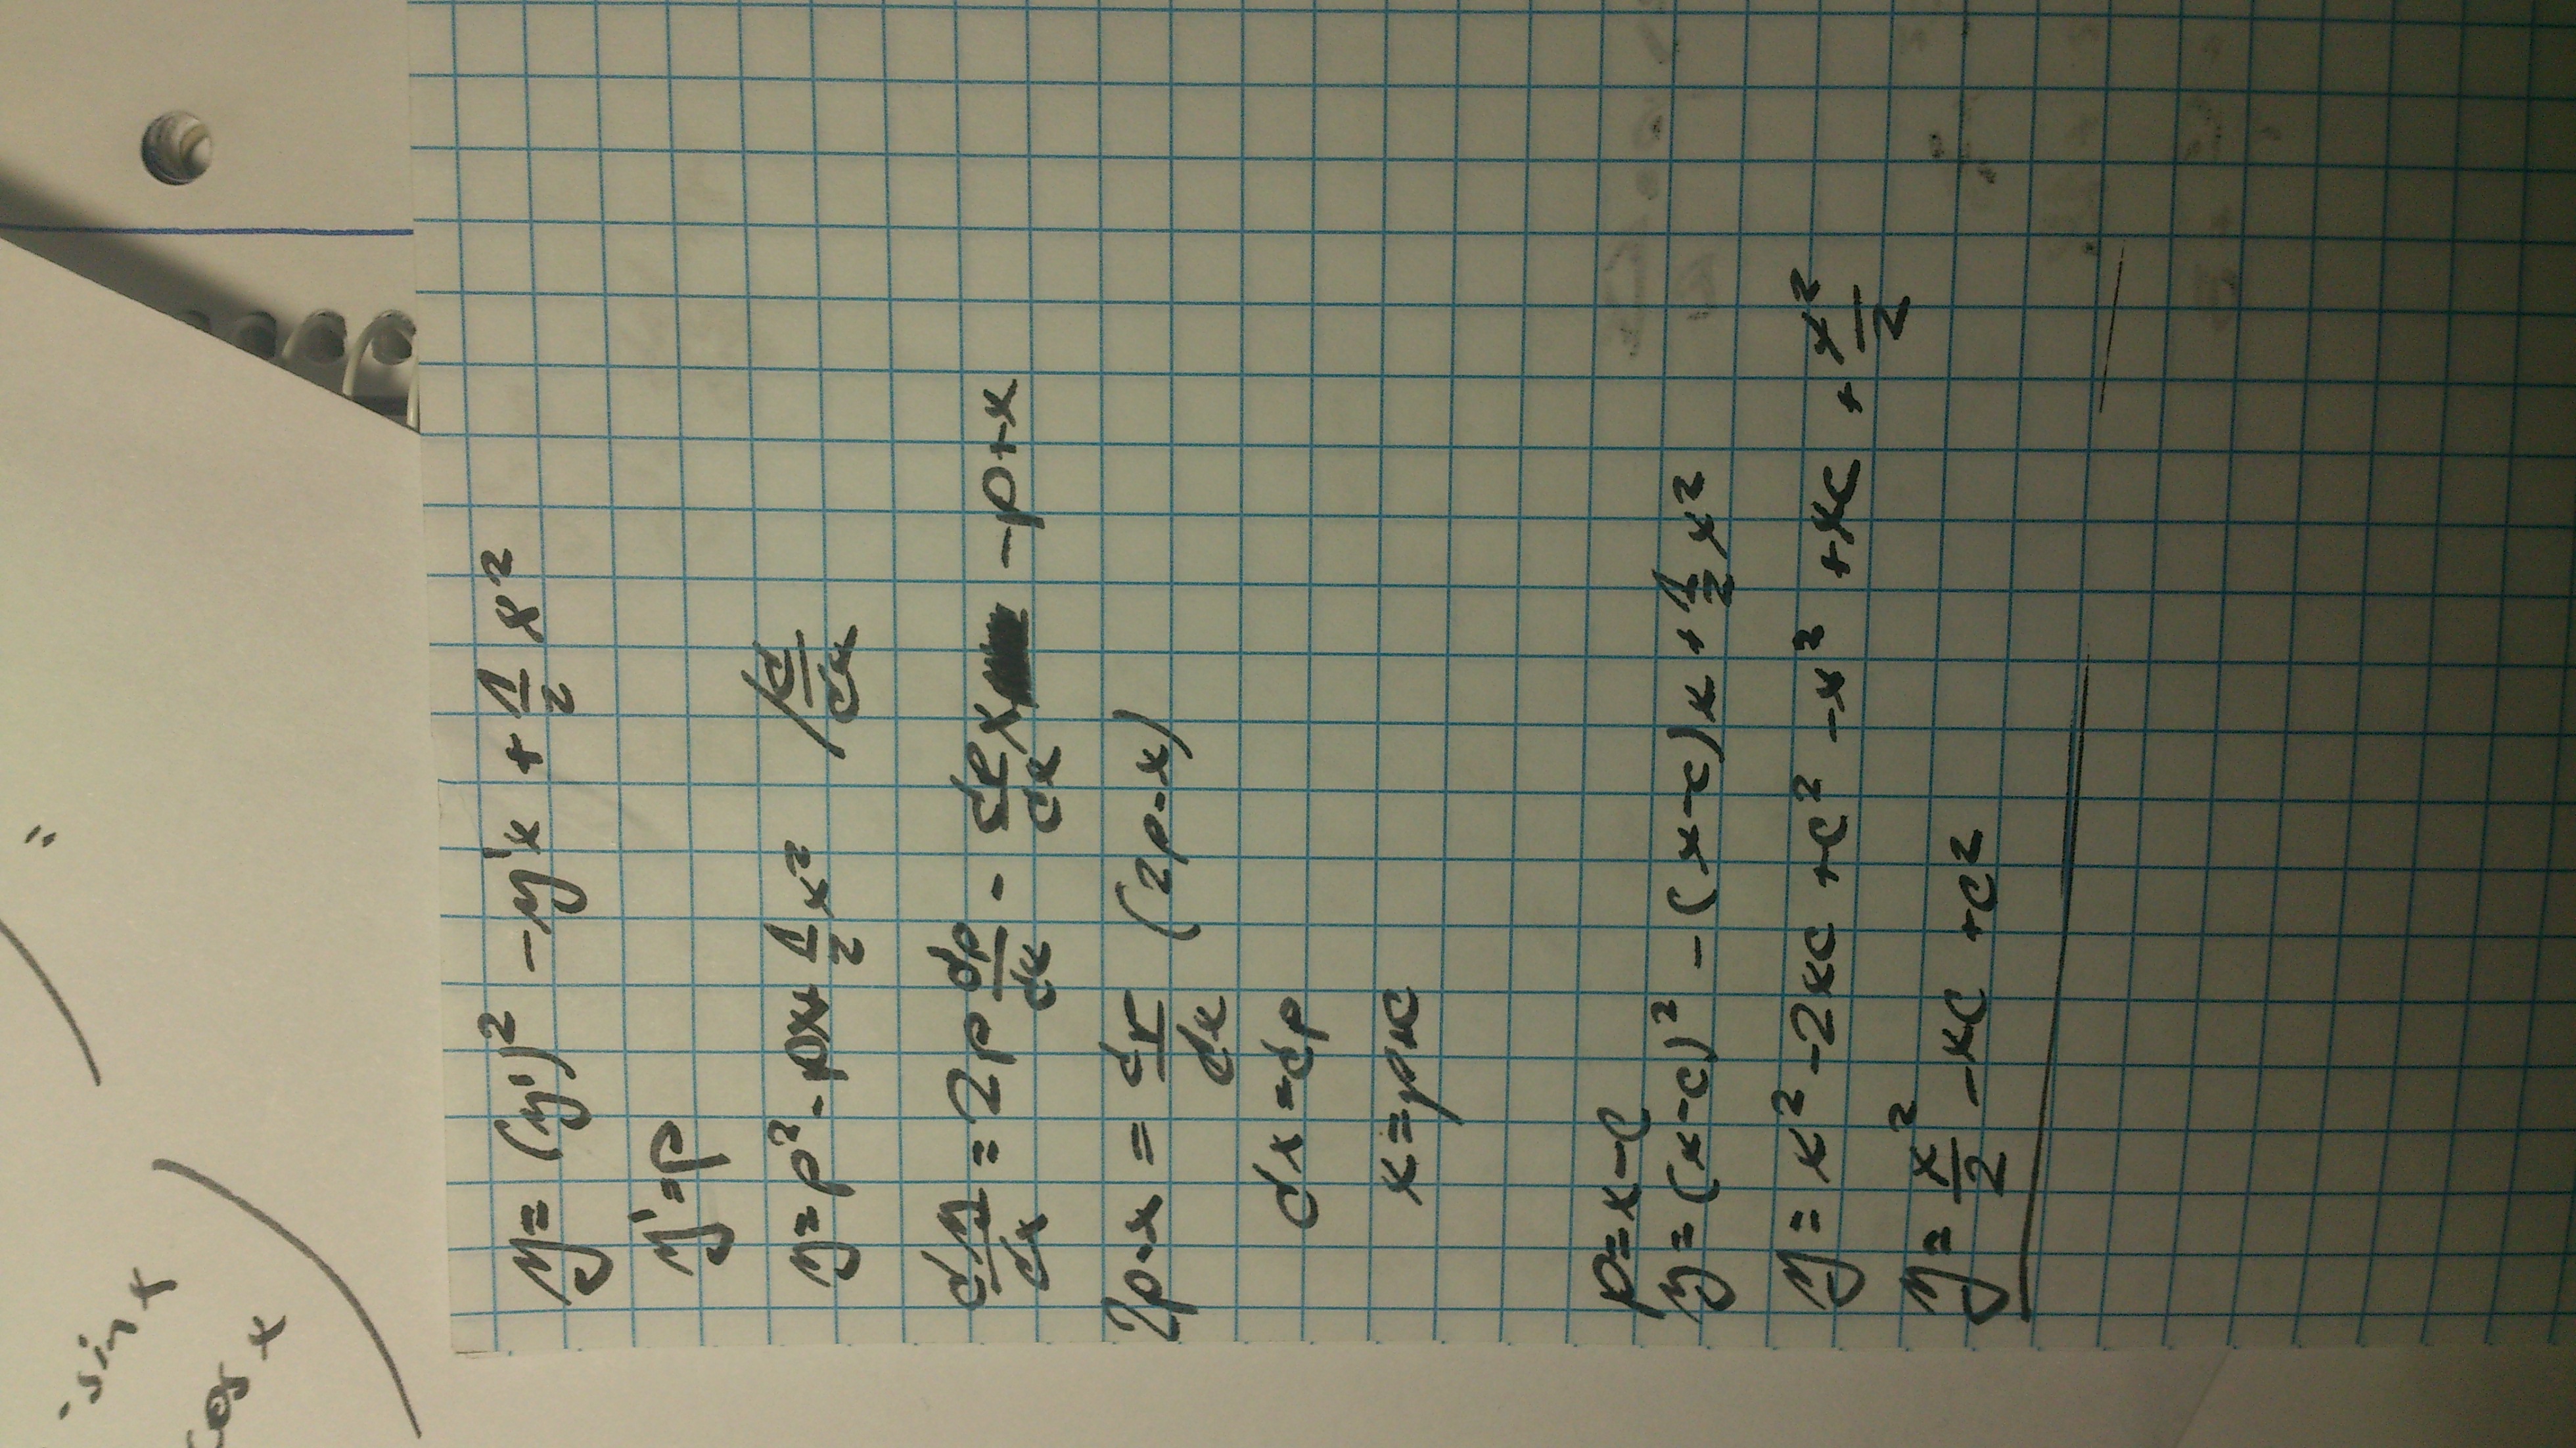 -sin x
cos x
=
y = (y')² - y'x + 1/2 x²
y' = p
y = p² - px + 1/2 x² / d/dx
dy/dx = 2p dp/dx - dp/dx x - p + x
2p - x = dp/dx (2p - x)
dx = dp
x = p + c
p = x - c
y = (x - c)² - (x - c)x + 1/2 x²
y = x² - 2xc + c² - x² + xc + x²/2
y = x²/2 - xc + c²